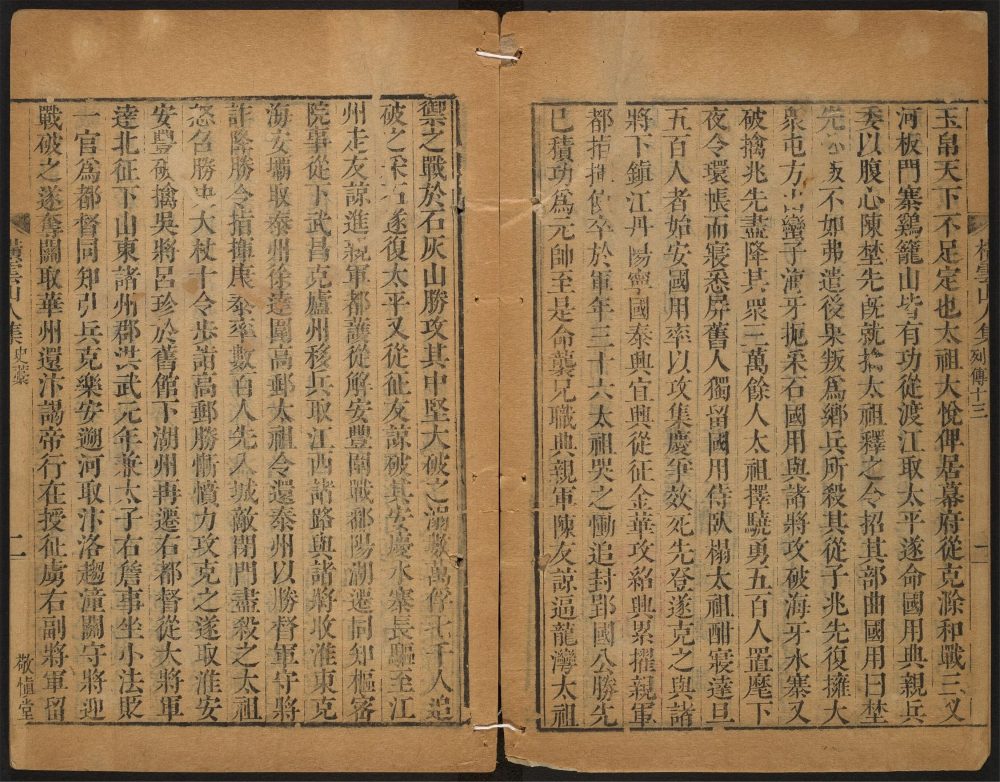 玉帛天下不足定也太祖大悅俾居幕府從克滁和戰三义
河板門寨鷄籠山皆有功從渡江取太平遂命國用典親兵
委以腹心陳埜先旣就擒太祖釋之令招其部曲國用曰埜
先必叛不如弗遣後果叛爲鄉兵所殺其從子兆先復擁大
衆屯方山蠻子海牙扼采石國用與諸將攻破海牙水寨又
破擒兆先盡降其衆三萬餘人太祖擇驍勇五百人置麾下
夜令環帳而寢悉屏舊人獨留國用侍臥榻太祖酣寢達旦
五百人者始安國用率以攻集慶爭效死先登遂克之與諸
將下鎮江丹陽寧國泰興宜興從征金華攻紹興累擢親軍
都指揮使卒於軍年三十六太祖哭之慟追封郢國公勝先
已積功爲元帥至是命襲兄職典親軍陳友諒逼龍灣太祖
橫雲山人集 列傳十三
禦之戰於石灰山勝攻其中堅大破之溺數萬俘七千人追
破之采石遂復太平又從征友諒破其安慶水寨長驅至江
州走友諒進親軍都護從解安豐圍戰鄱陽湖遷同知樞密
院事從下武昌克廬州移兵取江西諸路與諸將收淮東克
海安壩取泰州徐達圍高郵太祖令還泰州以勝督軍守將
詐降勝令指揮康泰率數百人先入城敵閉門盡殺之太祖
怒召勝決大杖十令步詣高郵勝慚憤力攻克之遂取淮安
安豐破擒吳將呂珍於舊館下湖州再遷右都督從大將軍
達北征下山東諸州郡洪武元年兼太子右詹事坐小法貶
一官爲都督同知引兵克樂安遡河取汴洛趨潼關守將迎
戰破之遂奪關取華州還汴謁帝行在授征虜右副將軍留
橫雲山人集 史藁
二
敬愼堂